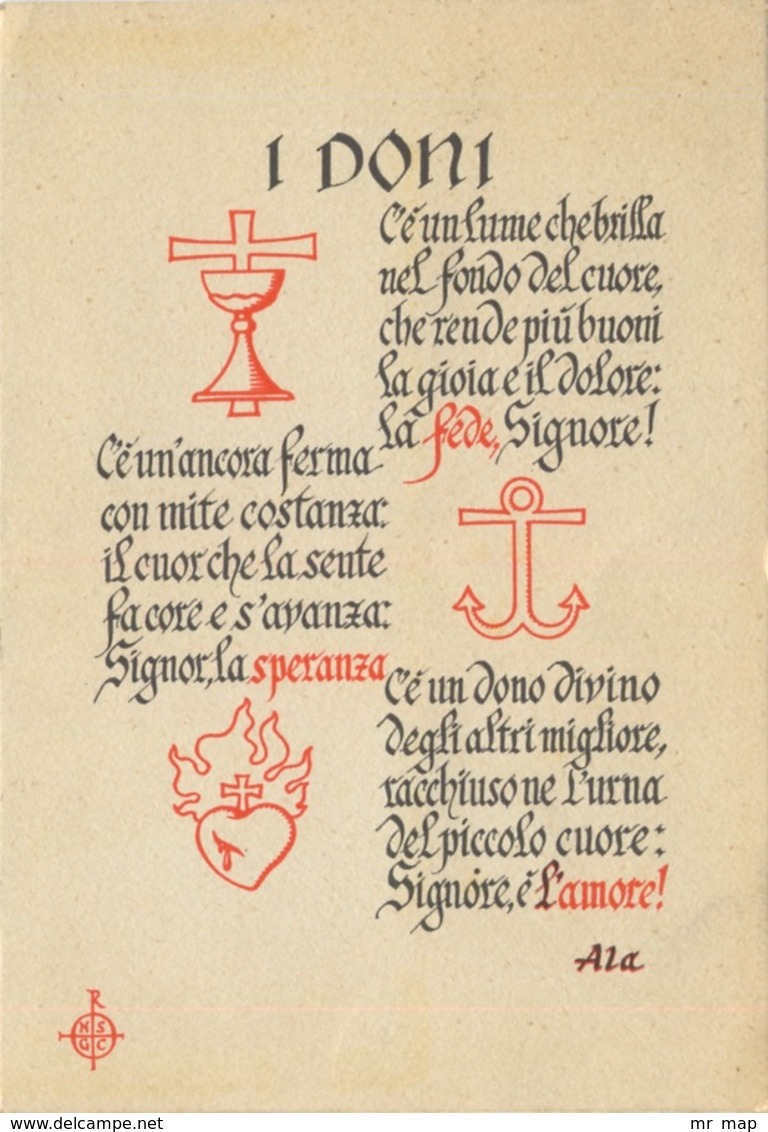 I DONI
C'è un lume che brilla
nel fondo del cuore,
che rende più buoni
la gioia e il dolore:
la fede, Signore!
C'è un'ancora ferma
con mite costanza:
il cuor che la sente
fa core e s'avanza:
Signor, la speranza
C'è un dono divino
degli altri migliore,
racchiuso ne l'urna
del piccolo cuore:
Signore, è l'amore!
Ala
R
N S
G C
Delcampe.net
mr_map